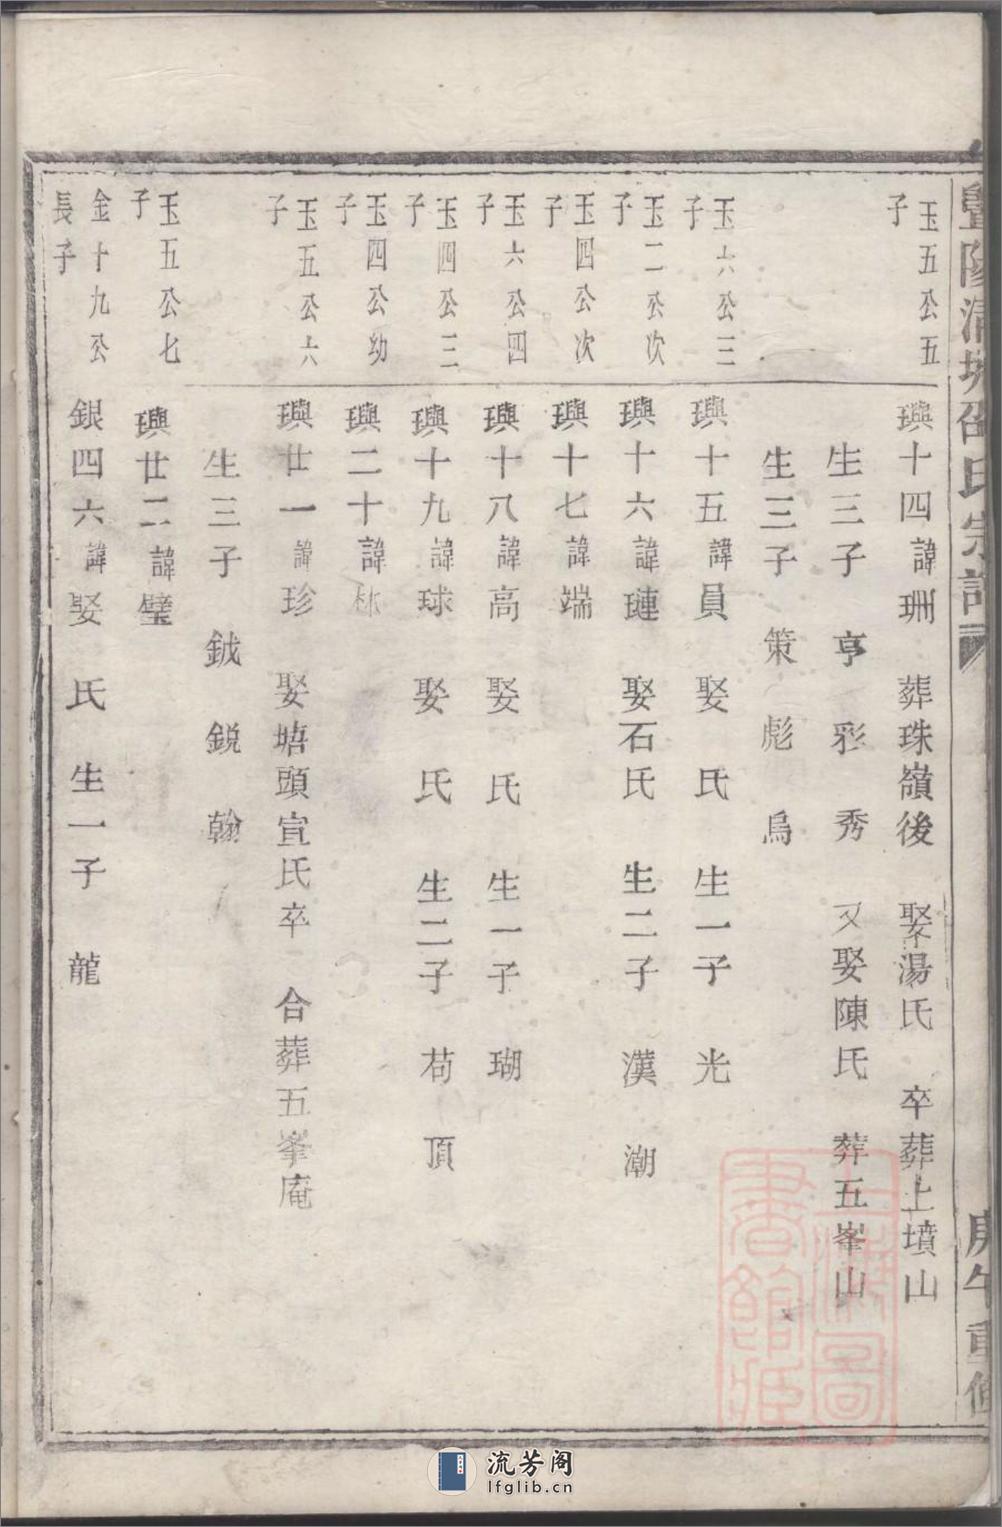 暨陽清塘邵氏宗譜
庚午重修
玉五公五
子
璵十四諱珊 葬珠嶺後 娶湯氏 卒葬上墳山
生三子 亨 彩 秀 又娶陳氏 葬五峯山
生三子 策 彪 烏
玉六公三
子
璵十五諱員 娶 氏 生一子 光
玉二公次
子
璵十六諱璉 娶石氏 生二子 漢 潮
玉四公次
子
璵十七諱端
玉六公四
子
璵十八諱高 娶 氏 生一子 瑚
玉四公三
子
璵十九諱球 娶 氏 生二子 苟 頂
玉四公幼
子
璵二十諱
玉五公六
子
璵廿一諱珍 娶塘頭宣氏卒 合葬五峯庵
生三子 鉞 銳 翰
玉五公七
子
璵廿二諱璧
金十九公
長子
銀四六諱 娶 氏 生一子 龍
上海圖書館藏
流芳阁
lfglib.cn